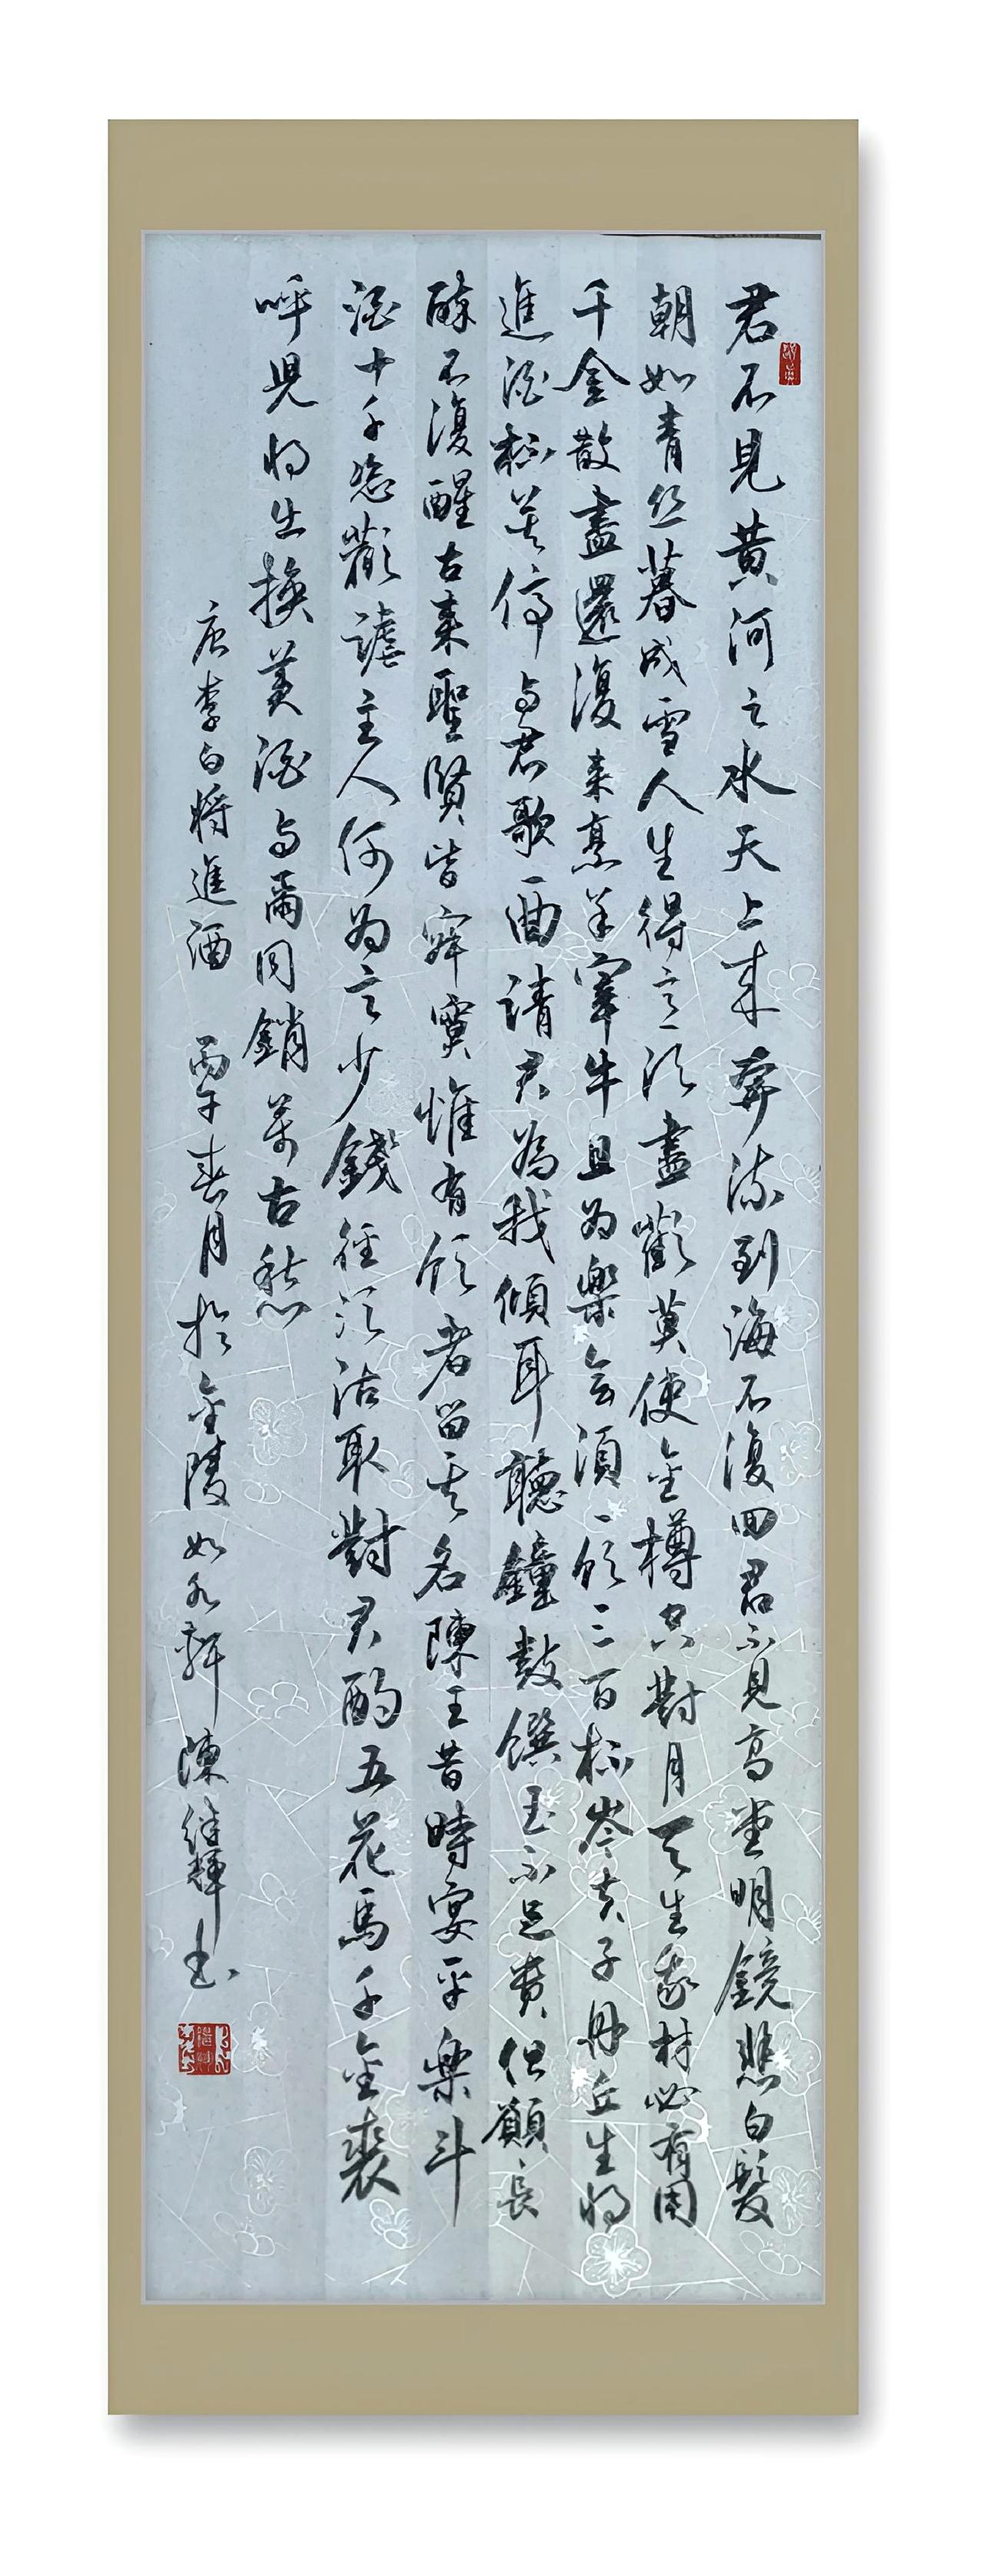 君不見黃河之水天上來奔流到海不復回君不見高堂明鏡悲白髮
朝如青絲暮成雪人生得意須盡歡莫使金樽空對月天生我材必有用
千金散盡還復來烹羊宰牛且为樂會須一飲三百杯岑夫子丹丘生將
進酒杯莫停与君歌一曲請君為我傾耳聽鐘鼓饌玉不足貴但願長
醉不復醒古來聖賢皆寂寞惟有飲者留其名陳王昔時宴平樂斗
酒十千恣歡謔主人何为言少錢徑須沽取對君酌五花馬千金裘
呼兒將出換美酒与爾同銷萬古愁
唐李白將進酒 丙午春月於金陵如水軒 陳繼輝书